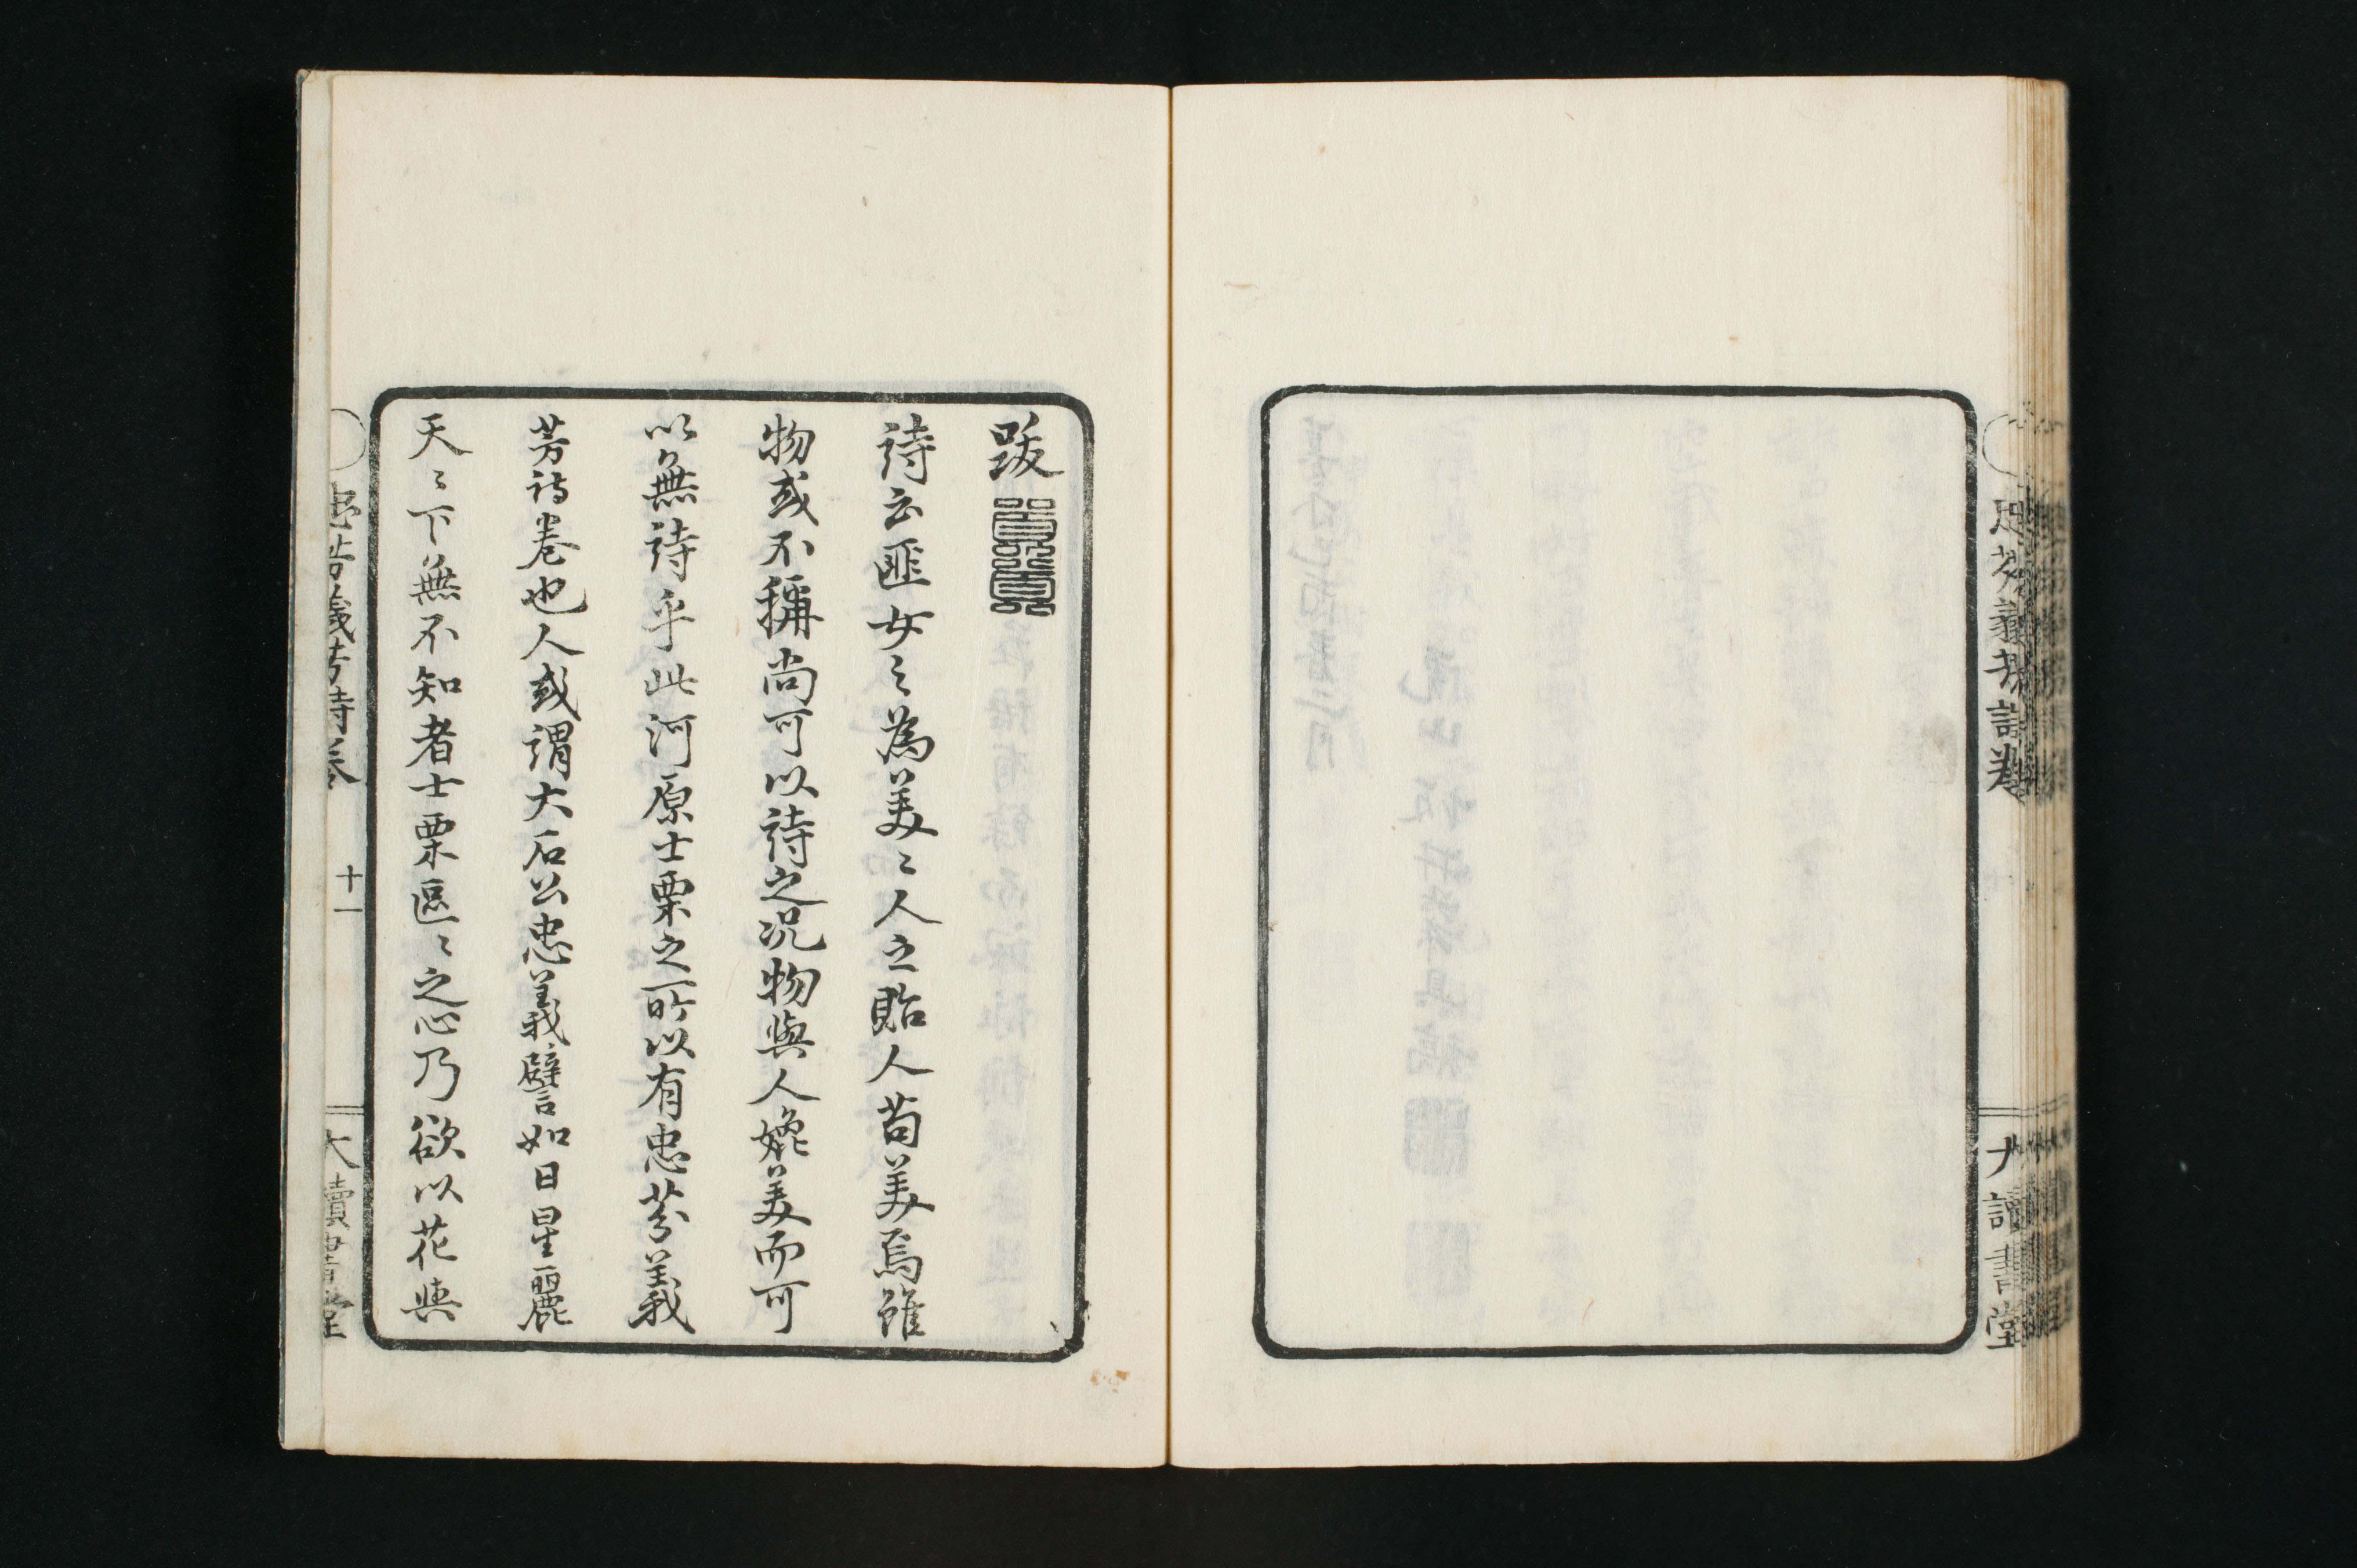 忠芬義芳詩卷
大讀書堂
跋
詩云匪女〻為美〻人之貽人苟美焉雖
物或不稱尚可以詩之況物與人媺美而可
以無詩乎此河原士栗之所以有忠芬義
芳詩卷也人或謂大石公忠義譬如日星麗
天〻下無不知者士栗區〻之心乃欲以花與
忠芬義芳詩卷
十一
大讀書堂